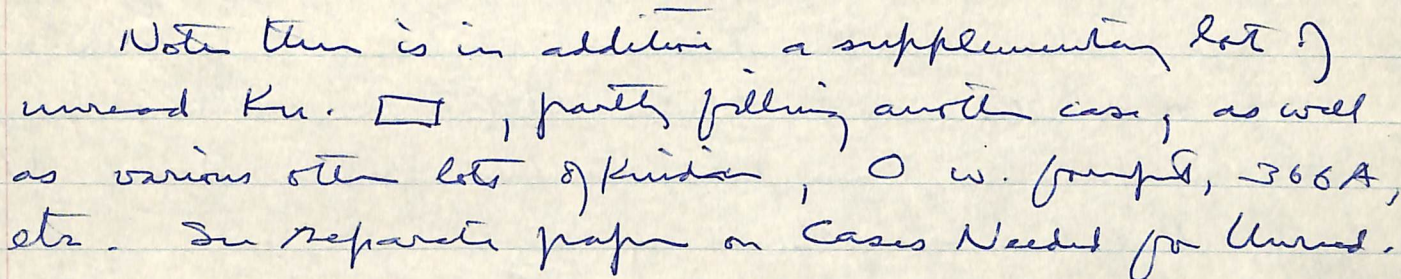 Note there is in addition a supplementary lot of
unread Ku. , partly filling another case, as well
as various other lots of Kindian, O w. , 366A,
etc. See separate paper on Cases Needed for Unread.